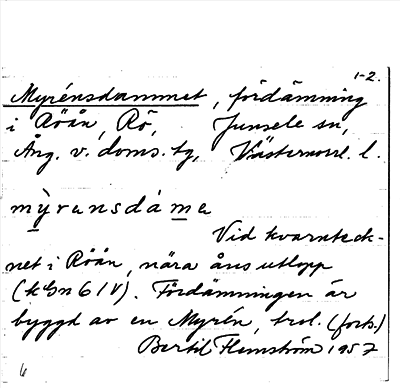 1-2.
Myrénsdammet, fördämning
i Röån, Rö, Junsele sn,
Ång. v. doms. tg, Västernorrl. l.
mỳransdáma
Vid kvarnteck-
net i Röån, nära åns utlopp
(kbn 6 IV). Fördämningen är
byggd av en Myrén, trol. (forts.)
Bertil Flemström 1957
6